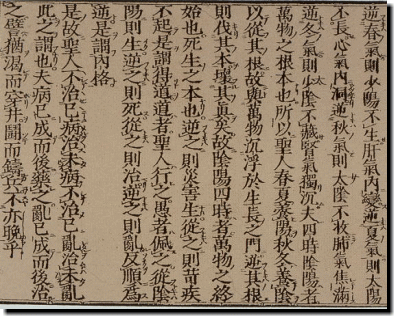 逆春氣則少陽不生肝氣內變逆夏氣則太陽
不長心氣內洞逆秋氣則太陰不收肺氣焦滿
逆冬氣則少陰不藏腎氣獨沉夫四時陰陽者
萬物之根本也所以聖人春夏養陽秋冬養陰
以從其根故與萬物沉浮於生長之門逆其根
則伐其本壞其真矣故陰陽四時者萬物之終
始也死生之本也逆之則災害生從之則苛疾
不起是謂得道道者聖人行之愚者佩之從陰
陽則生逆之則死從之則治逆之則亂反順為
逆是謂內格
是故聖人不治已病治未病不治已亂治未亂
此之謂也夫病已成而後藥之亂已成而後治
之譬猶渴而穿井鬭而鑄兵不亦晚乎